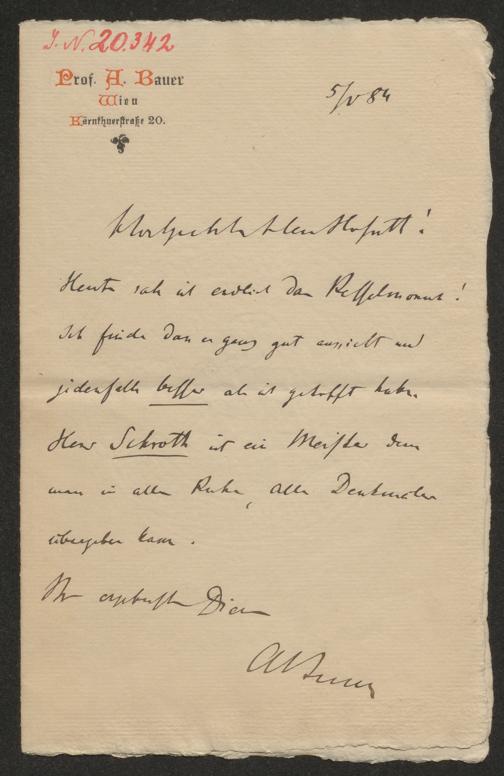 J. N. 20.342
Prof. A. Bauer
Wien
Kärnthnerstraße 20.
5/V 84
Hochgeehrter Herr Hofrath!
Heute sah ich endlich das Resselmonument!
Ich finde dass es ganz gut aussieht und
jedenfalls besser als ich gehofft habe.
Herr Schroth ist ein Meister dem
man in aller Ruhe, alle Denkmäler
übergeben kann.
Ihr ergebenster Diener
ABauer